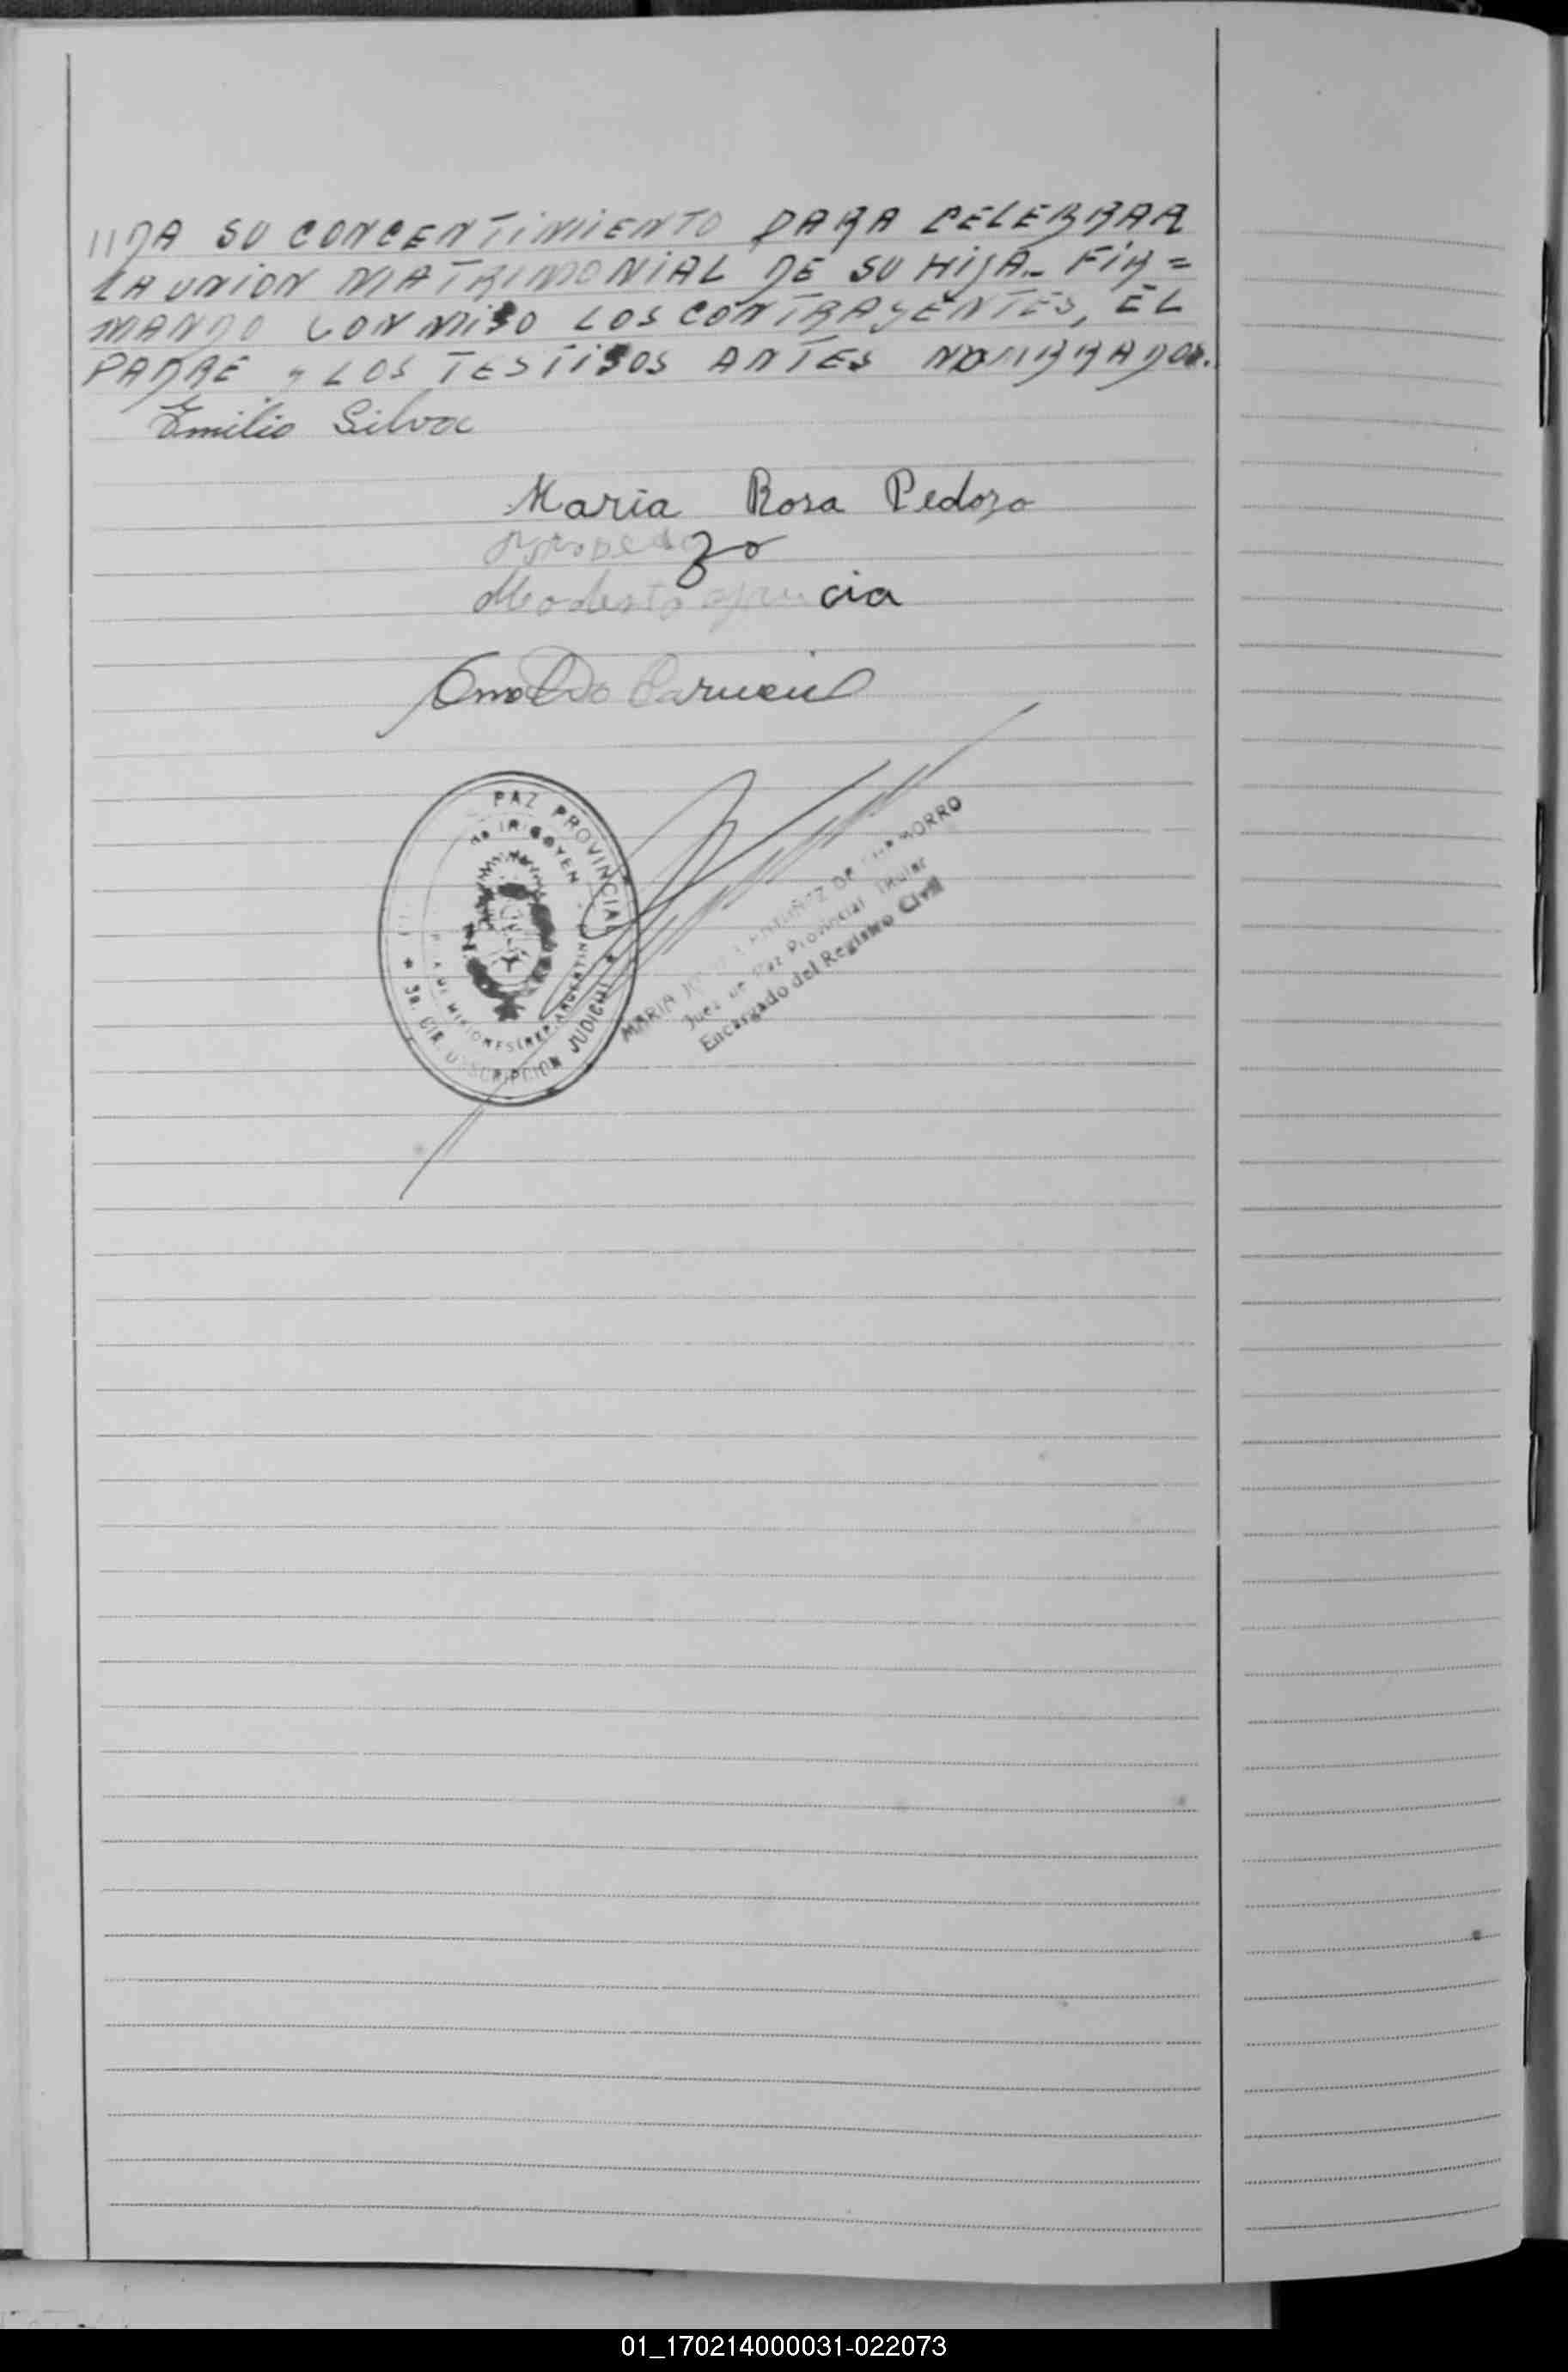 //DA SU CONCENTIMIENTO PARA CELEBRAR
LA UNION MATRIMONIAL DE SU HIJA._ FIR=
MANDO CONMIGO LOS CONTRAYENTES, EL
PADRE Y LOS TESTIGOS ANTES NOMBRADOS.
Emilio Silva
Maria Rosa Pedozo
Modesto
PAZ PROVINCIAL
de IRIGOYEN
MISIONES (REP. ARGENTINA
3a. CIRCUNSCRIPCION JUDICIAL
MARIA DE
Juez de Paz Provincial Titular
Encargado del Registro Civil
01_170214000031-022073